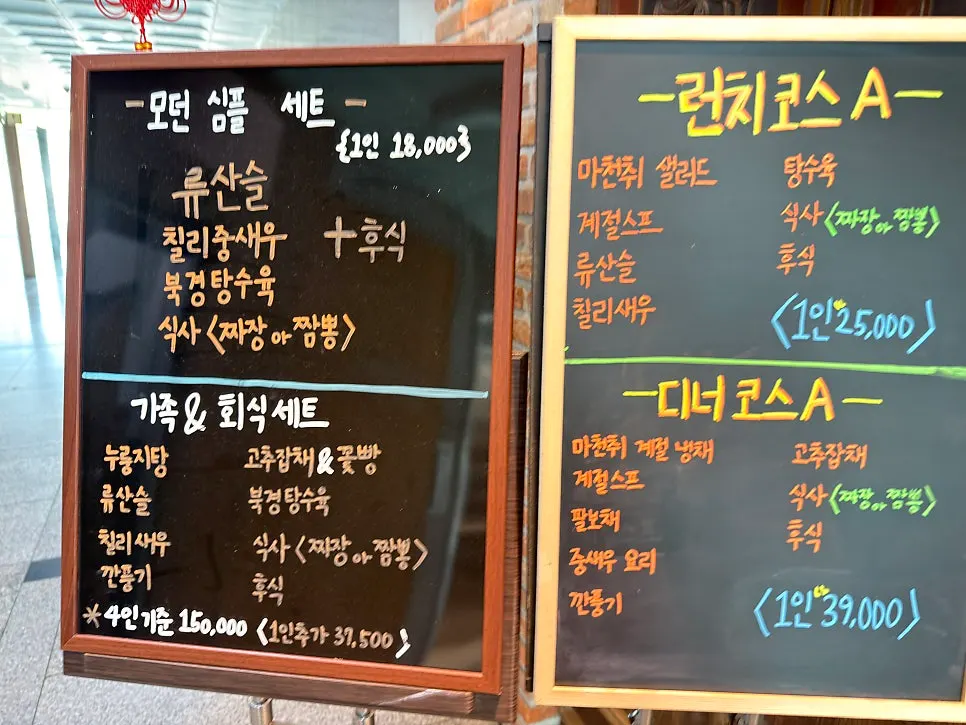 - 모던 심플 세트 -
{1인 18,000}
류산슬
칠리중새우 + 후식
북경탕수육
식사 <짜장 or 짬뽕>
가족 & 회식 세트
누룽지탕 고추잡채 & 꽃빵
류산슬 북경탕수육
칠리새우 식사 <짜장 or 짬뽕>
깐풍기 후식
* 4인기준 150,000 <1인추가 37,500>
- 런치코스 A -
마천취 샐러드 탕수육
계절스프 식사 <짜장 or 짬뽕>
류산슬 후식
칠리새우
<1인 25,000>
- 디너코스 A -
마천취 계절 냉채 고추잡채
계절스프 식사 <짜장 or 짬뽕>
팔보채 후식
중새우 요리
깐풍기
<1인 39,000>